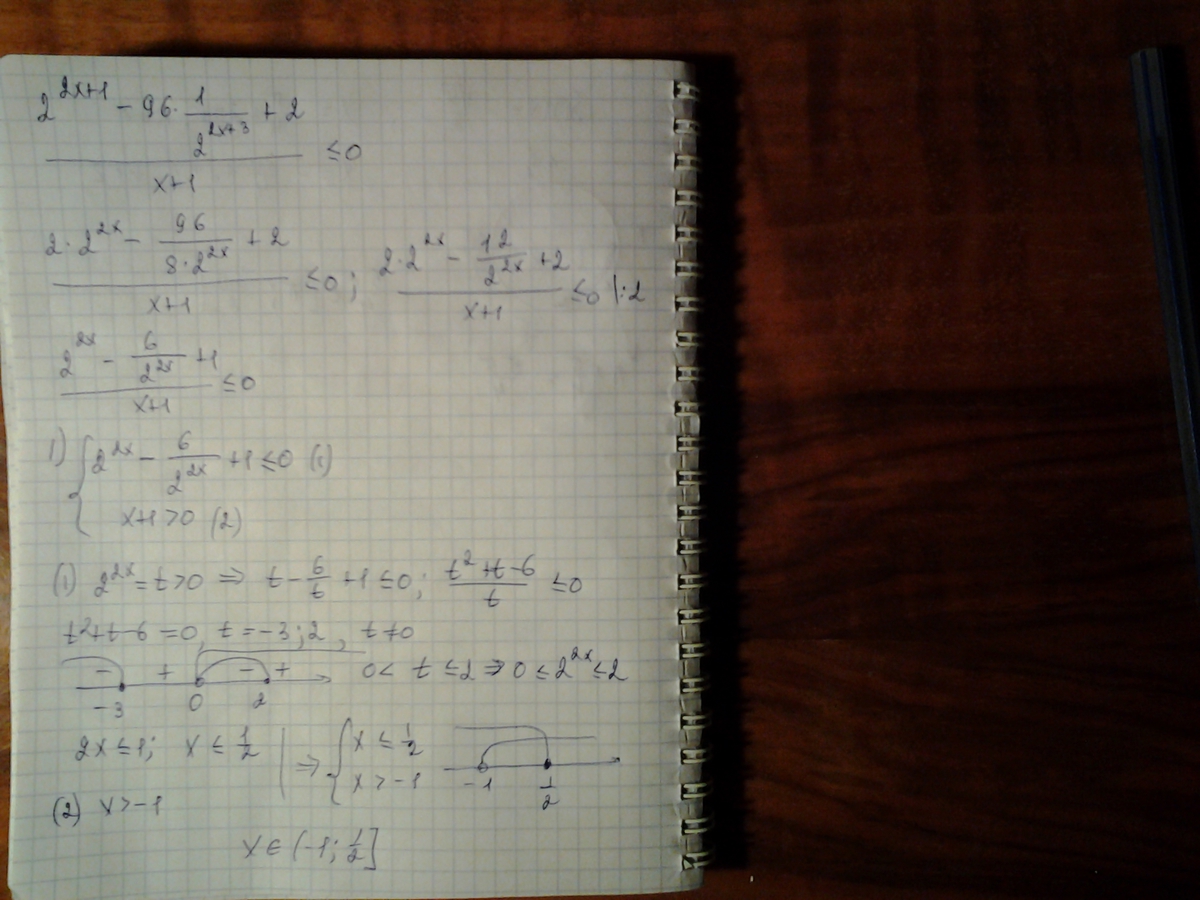 (2^(2x+1) - 96·1/2^(2x+3) + 2)/(x+1) ≤0
(2·2^(2x) - 96/(8·2^(2x)) + 2)/(x+1) ≤0; (2·2^(2x) - 12/2^(2x) + 2)/(x+1) ≤0 |:2
(2^(2x) - 6/2^(2x) + 1)/(x+1) ≤0
1) { 2^(2x) - 6/2^(2x) + 1 ≤0 (1)
x+1>0 (2)
(1) 2^(2x) = t>0 ⇒ t - 6/t + 1 ≤0; (t²+t-6)/t ≤0
t²+t-6=0, t=-3;2, t≠0
- + - + 0< t ≤2 ⇒ 0 ≤ 2^(2x) ≤2
-3 0 2
2x ≤1; x ≤ 1/2 | ⇒ { x ≤ 1/2
x>-1 -1 1/2
(2) x>-1
x∈(-1; 1/2]